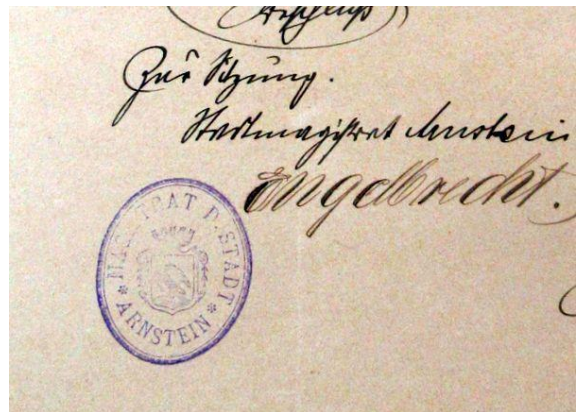 Beschluß
Zur Sitzung.
Stadtmagistrat Arnstein
Engelbrecht.
* MAGISTRAT D. STADT *
ARNSTEIN